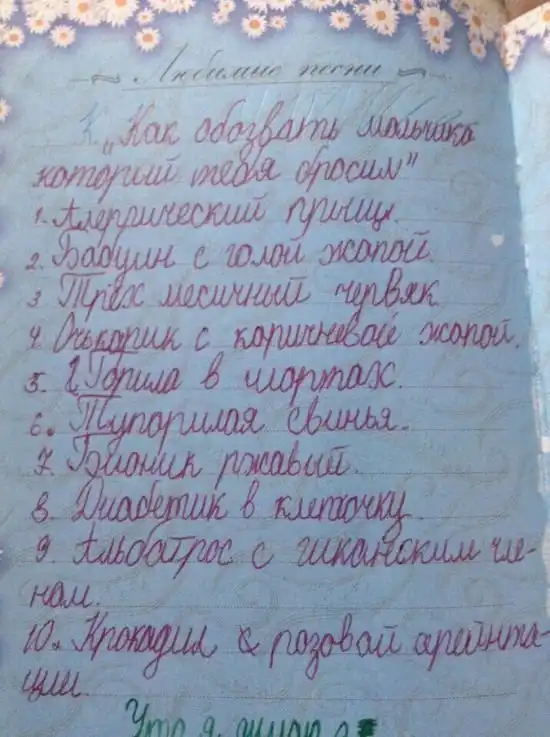 Любимые песни
К "Как обозвать мальчика
который тебя бросил"
1. Алеррический прыщь.
2. Бабуин с голой жопой.
3 Трёх месичный червяк
4. Очькарик с каричневой жопой.
5. Горила в шортах.
6. Тупорылая свинья.
7. Бионик ржавый.
8. Диабетик в клеточку.
9. Альбатрос с гиканским чле-
ном.
10. Крокадил с розовой арейнта-
ции.
Что я